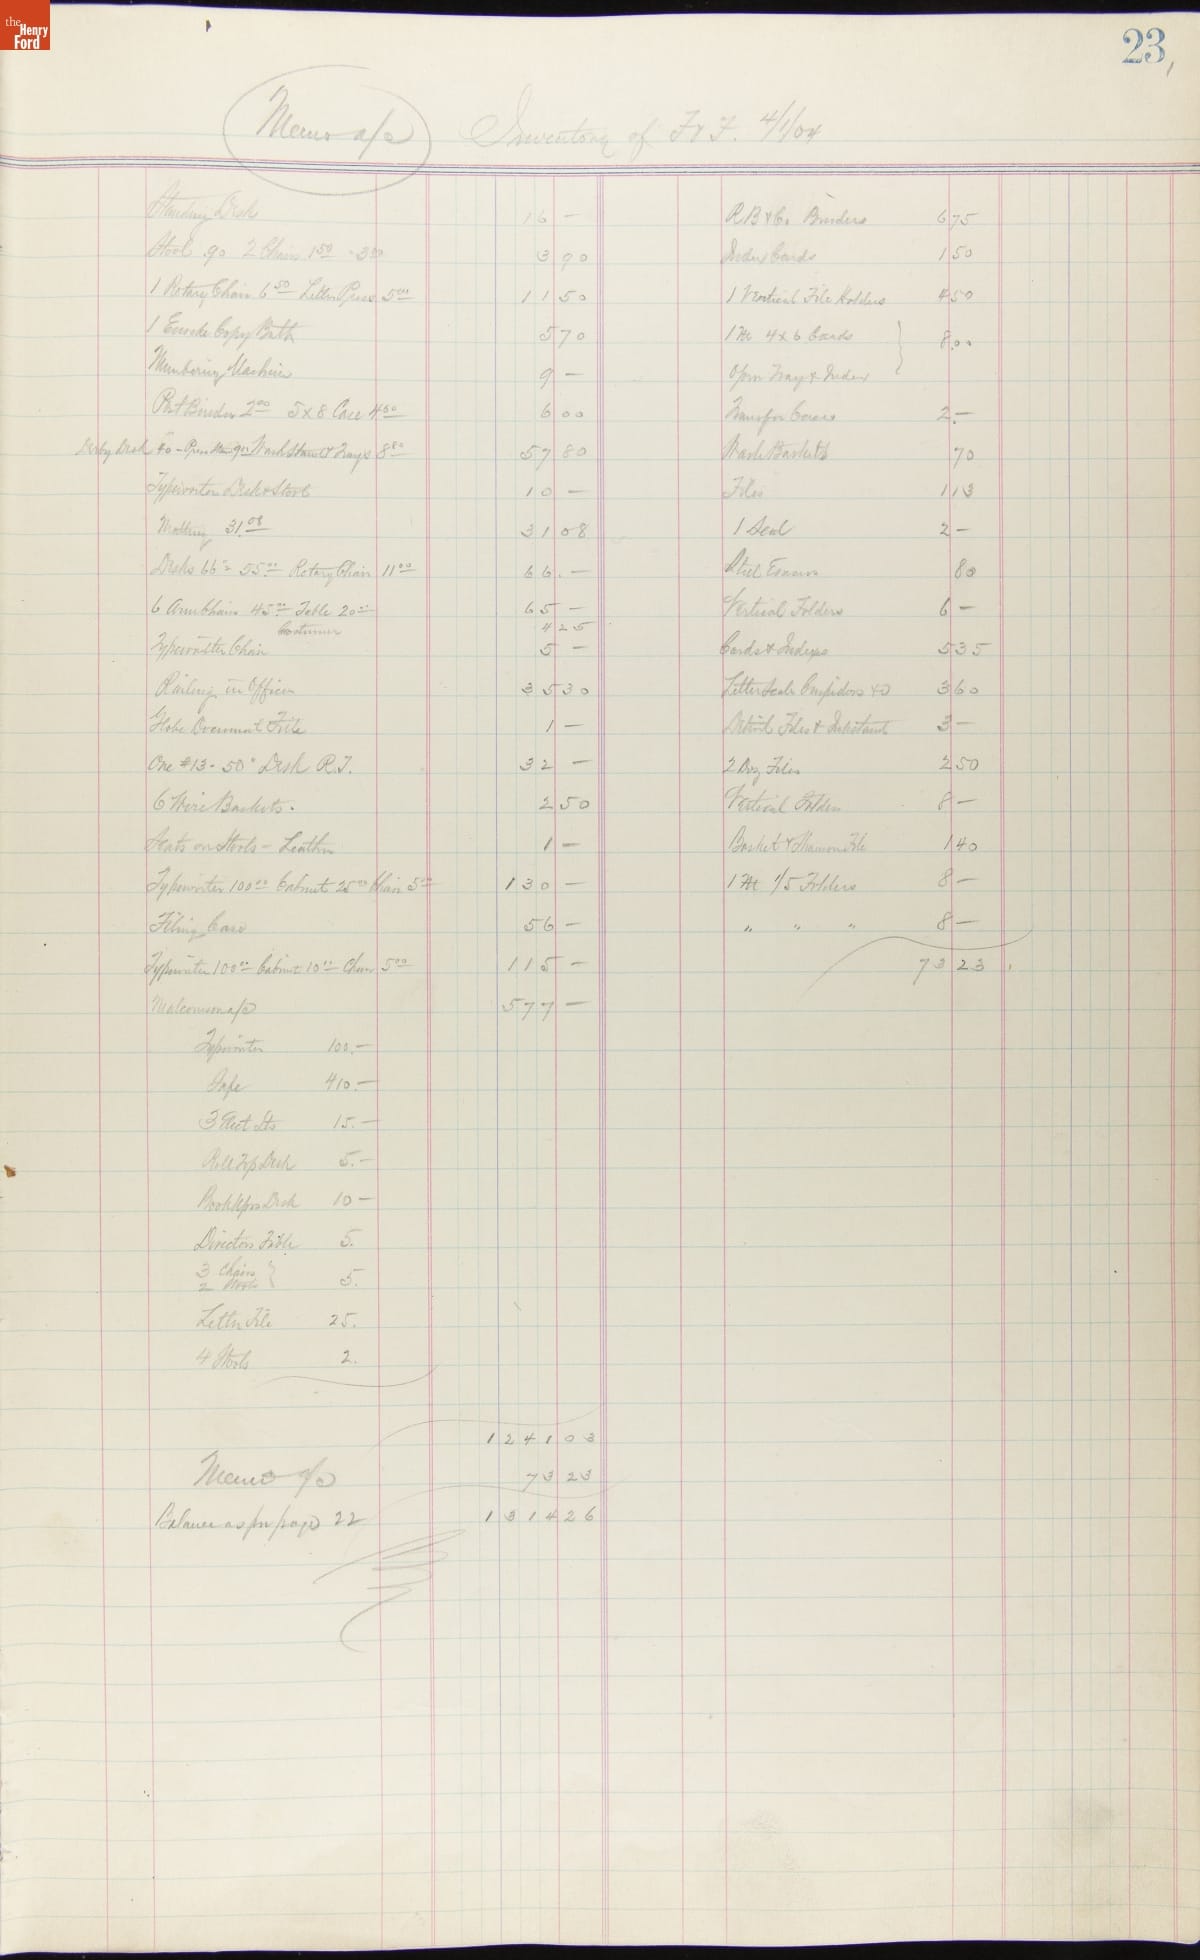 the Henry Ford
23
Memo a/c Inventory of F & F. 4/1/04
Standing Desk 16 —
Stool .90 2 Chairs 1.50 - 3.00 3 90
1 Rotary Chair 6.50 Letter Press 5.00 11 50
1 Copy Bath 5 70
Numbering Machine 9 —
Post Binder 2.00 5 x 8 Case 4.00 6 00
Derby Desk 40 - Wash Stand & Trays 8.80 57 80
Typewriter Desk & Stool 10 —
Matting 31.08 31 08
Desks 55.00 Rotary Chair 11.00 66. —
6 Arm Chairs 45.00 Table 20.00 65 —
Costumer 4 25
Typewriter Chair 5 —
Railing in Office 35 30
Globe Document File 1 —
One #13 - 50" Desk R.T. 32 —
6 Wire Baskets. 2 50
Seats on Stools - Leather 1 —
Typewriter 100.00 Cabinet 25.00 Chair 5.00 130 —
Filing Case 56 —
Typewriter 100.00 Cabinet 10.00 Chair 5.00 115 —
Malcomson a/c 577 —
Typewriter 100. —
Safe 410. —
3 Elect Lts 15. —
Roll Top Desk 5. —
Bookkprs Desk 10 —
Directors Table 5.
3 Chairs
2 Stools } 5.
Letter File 25.
4 Stools 2.
1241 03
Memo a/c 73 23
Balance as per page 22 1314 26
R B & Co. Binders 6 75
Index Cards 1 50
1 Vertical File Holders 4 50
1 M 4 x 6 Cards } 8.00
Open Tray & Index
Transfer Cases 2. —
Waste Baskets 70
Files 1 13
1 Seal 2 —
Steel Erasers 80
Vertical Folders 6 —
Cards & Indexes 5 35
Letter Scale Cuspidors &c 3 60
Files & Inkstand 3 —
2 Doz Files 2 50
Vertical Folders 8 —
Basket & Shannon File 1 40
1 M 1/5 Folders 8 —
" " " 8 —
73 23